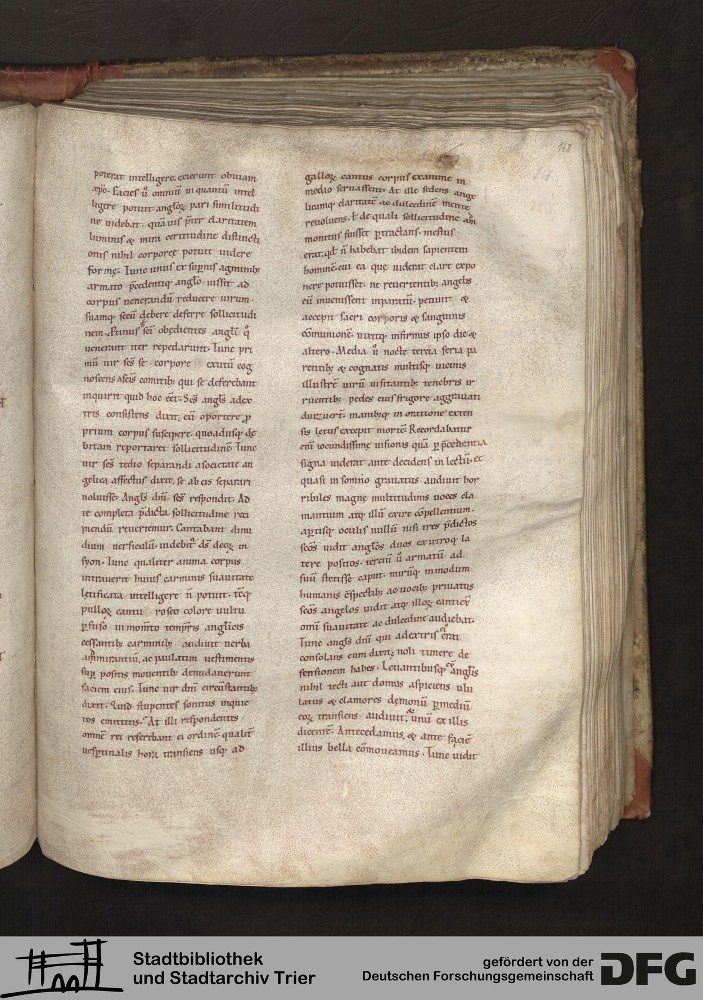 163
poterat intelligere. exierunt obuiam
xp̄o. Facies ū omniū in quantū intel
ligere potuit angl̄oꝝ pari similitudi
ne uidebat. quāuis p̄ter claritatem
luminis & mira certitudine distincti
onis nihil corporeę potuit uidere
formę. Tunc unus ex suꝑnis agminib;
armato p̄cedentiq; angl̄o iussit ad
corpus uenerandū reducere uirum.
suamq; secū debere deferre sollicitudi
nem. sc̄i obędientes angl̄i q̊
uenerant iter repedarunt. Tunc pri
mū uir sēs se corpore exutū cog
noscens a sc̄is comitib; qui se deferebant
inquirit quid hoc eēt. Sēs angl̄s a dex
tris consistens dixit. eū oportere ꝓ
prium corpus suscipere. quoadusq; de
bitam reportaret sollicitudinē. Tunc
uir sēs tedio separandi a societate an
gelica affectus dixit. se ab eis separari
noluisse. Angl̄s dn̄i sēs respondit. Ad
te completa p̄dicta sollicitudine reci
piendū reuertemur. Cantabant dimi
dium uersiculū. uidebit ds̄ deoꝝ in
syon. Tunc qualiter anima corpus
intrauerit huius carminis suauitate
lętificata intelligere n̄ potuit.
pulloꝝ cantu roseo colore uultu
ꝑfuso in momto temporis anglicis
cessantib; carminib; audiuit uerba
ammirantiū. ac paulatim uestimentis
suꝑ positis mouentib; denudauerunt
faciem eius. Tunc uir dn̄i circūstantib;
dixit. Quid stupentes sonitus inquie
tos emittitis. At illi respondentes
omnē rei referebant ei ordinē qualit̄
uesꝑtinalis hora transiens usq; ad
galloꝝ cantus corpus exanime in
medio seruassent. At ille sedens ange
licamq; claritatē ac dulcedinē mente
reuoluens. ł de quali sollicitudine am
monitus fuisset ꝑtractans. mestus
erat. qđ n̄ habebat ibidem sapientem
hominē. cui ea que uiderat clare expo
nere potuisset. ne reuertentib; angelis
eū inuenissent inparatū. petiuit &
accepit sacri corporis & sanguinis
cōmunionē. uixitq; infirmus ipso die &
altero. Media ū nocte tercia feria pa
rentib; & cognatis multisq; uicinis
illustrē uirū uisitantib; tenebris ir
ruentib; pedes eius frigore aggrauari
dixerunt. manibq; in oratione exten
sis letus excepit mortē. Recordabatur
enī iocundissimę uisionis quā ꝑ p̄cedentia
signa uiderat. ante decidens in lectū. et
quasi in somno grauatus audiuit hor
ribiles magne multitudinis uoces cla
mantium atq; illū exire cōpellentium.
aꝑtisq; oculis nullū nisi tres p̄dictos
sc̄os uidit angl̄os duos ex utroq; la
tere positos. terciū ū armatū ad
suū stetisse caput. mirūq; in modum
humanis cōspectib; ac uocib; priuatus
sc̄os angelos uidit atq; illoꝝ canticū
omī suauitate ac dulcedine audiebat.
Tunc angl̄s dn̄i qui a dextris ei erat
consolans eum dixit. noli timere de
fensionem habes. Leuantibusq; eū angl̄is
nihil tecti aut domus aspiciens ulu
latus & clamores demonū ꝑ mediū
eoꝝ transiens audiuit. unū ex illis
dicentē. Antecedamus. & ante faciē
illius bella cōmoueamus. Tunc uidit
Stadtbibliothek
und Stadtarchiv Trier
gefördert von der
Deutschen Forschungsgemeinschaft
DFG